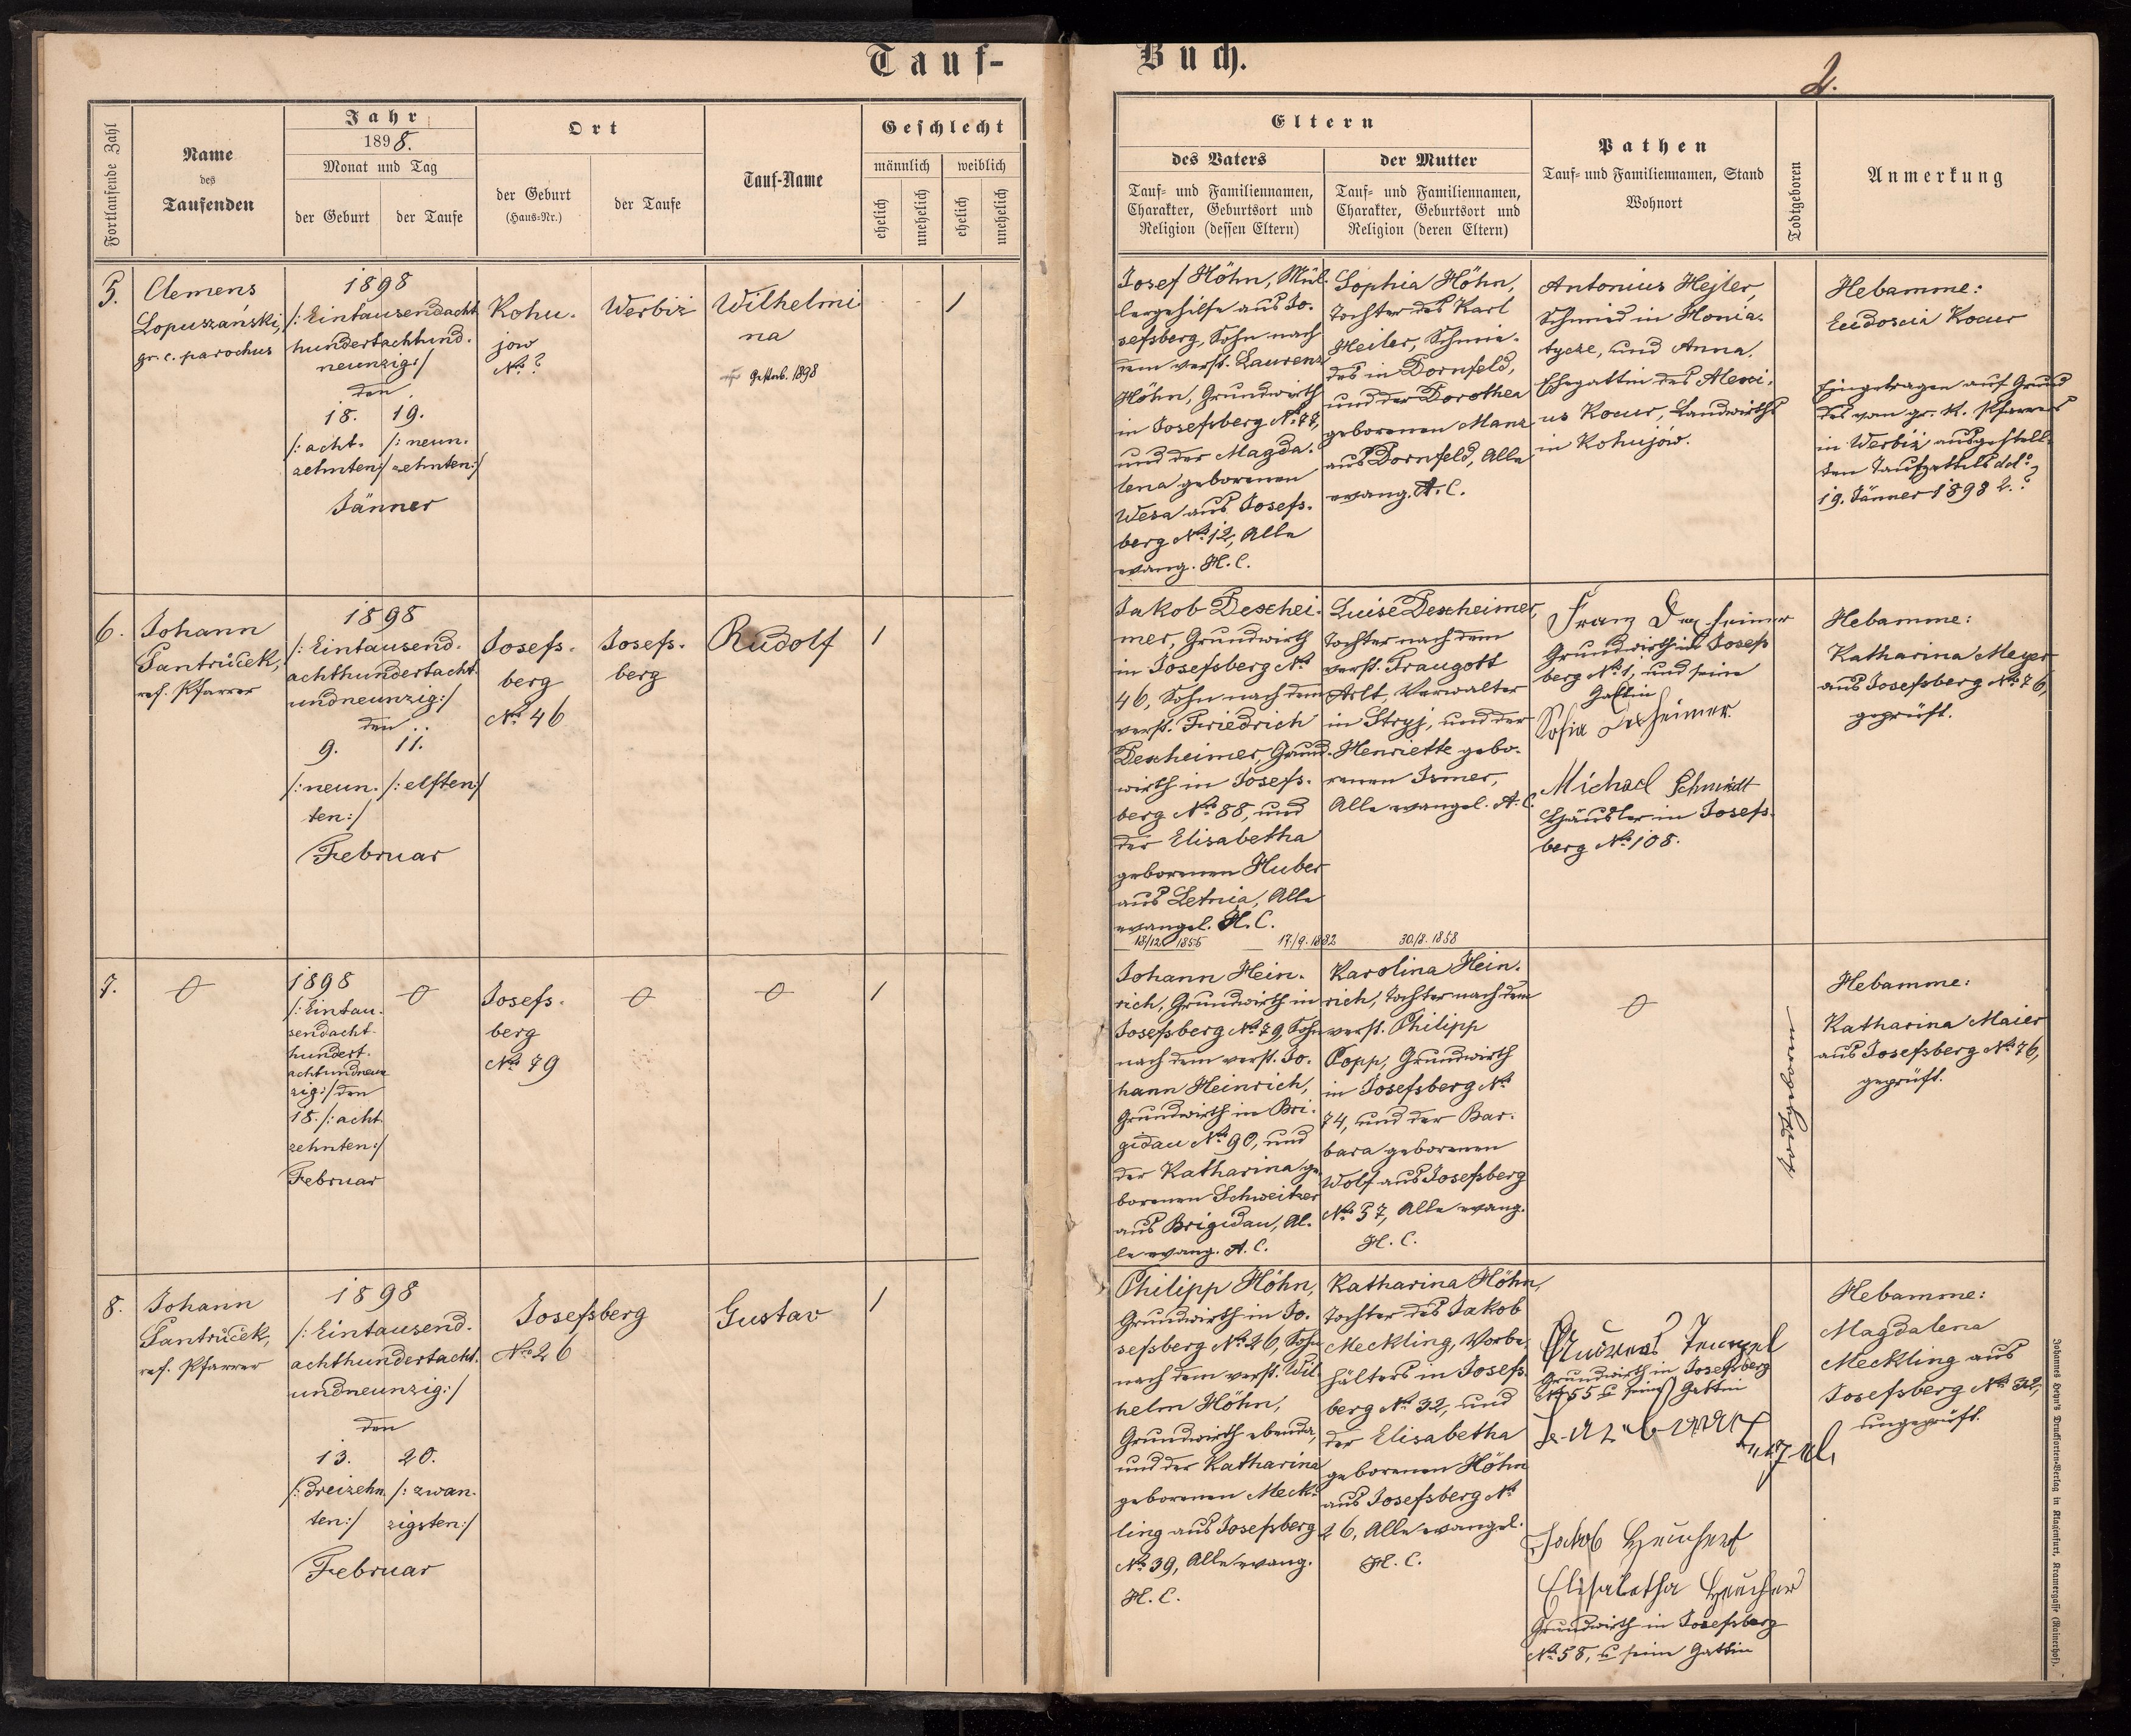 Tauf-
Buch.
2.
Fortlaufende Zahl
Name
des
Taufenden
Jahr
1898.
Monat und Tag
der Geburt
der Taufe
Ort
der Geburt
(Haus-Nr.)
der Taufe
Tauf-Name
Geschlecht
männlich
weiblich
ehelich
unehelich
ehelich
unehelich
Eltern
des Vaters
Tauf- und Familiennamen,
Charakter, Geburtsort und
Religion (dessen Eltern)
der Mutter
Tauf- und Familiennamen,
Charakter, Geburtsort und
Religion (deren Eltern)
Pathen
Tauf- und Familiennamen, Stand
Wohnort
Todtgeboren
Anmerkung
5.
Clemens
Lopuszański,
gr. c. parochus
1898
/:Eintausendacht
hundertachtund-
neunzig:/
den
18. 19.
/:acht- /:neun-
zehnten:/ zehnten:/
Jänner
Kohu-
jow
No ?
Werbiż
Wilhelmi
na
Gestorb. 1898
1
Josef Höhn, Mül-
lergehilfe aus Jo-
sefsberg, Sohn nach
dem verst. Laurenz
Höhn, Grundwirth
in Josefsberg No 77,
und der Magda-
lena geborenen
Wesa aus Josefs-
berg No 12, Alle
evang. H. C.
Sophia Höhn,
Tochter des Karl
Heiler, Schmie-
des in Dornfeld,
und der Dorothea
geborenen Manz
aus Dornfeld, Alle
evang. A. C.
Antonius Hejler,
Schmied in Honia-
tycze, und Anna,
Ehegattin des Alexi-
us Kocur, Landwirths
in Kohujów.
Hebamme:
Eudoscia Kocur
Eingetragen auf Grund
des vom gr. k. Pfarrers
in Werbiż ausgestell-
ten Taufzettels ddo
19. Jänner 1898 Z. ?
6.
Johann
Pantrůček,
ref. Pfarrer
1898
/:Eintausend-
achthundertacht-
undneunzig:/
den
9. 11.
/:neun- /:elften:/
ten:/
Februar
Josefs-
berg
No 46
Josefs-
berg
Rudolf
1
Jakob Dexhei-
mer, Grundwirth
in Josefsberg No
46, Sohn nach dem
verst. Friedrich
Dexheimer, Grund-
wirth in Josefs-
berg No 88, und
der Elisabetha
geborenen Huber
aus Letnia, Alle
evangel. H. C.
Luise Dexheimer,
Tochter nach dem
verst. Traugott
Arlt, Verwalter
in Stryj, und der
Henriette gebo-
renen Ismer,
Alle evangel. A. C.
Franz Dexheimer
Grundwirth in Josefs
berg No 1, und seine
Gattin
Sofia Dexheimer.
Michael Schmidt
Häusler in Josefs-
berg No 108.
Hebamme:
Katharina Meyer
aus Josefsberg No 76,
geprüft.
18/12 1855 17/9. 1882 30/8. 1858
7.
1898
/:Eintau-
sendacht-
hundert-
achtundneun
zig:/ den
18. /:acht-
zehnten:/
Februar
Josefs-
berg
No 79
1
Johann Hein-
rich, Grundwirth in
Josefsberg No 79, Sohn
nach dem verst. Jo-
hann Heinrich,
Grundwirth in Bri-
gidau No 90, und
der Katharina ge-
borenen Schweitzer
aus Brigidau, Al-
le evang. A. C.
Karolina Hein-
rich, Tochter nach dem
verst. Philipp
Popp, Grundwirth
in Josefsberg No
74, und der Bar-
bara geborenen
Wolf aus Josefsberg
No 57, Alle evang.
H. C.
Hebamme:
Katharina Maier
aus Josefsberg No 76,
geprüft.
8.
Johann
Pantrůček,
ref. Pfarrer
1898
/:Eintausend-
achthundertacht-
undneunzig:/
den
13. 20.
/:dreizehn- /:zwan-
ten:/ zigsten:/
Februar
Josefsberg
No 26
Gustav
1
Philipp Höhn,
Grundwirth in Jo-
sefsberg No 26, Sohn
nach dem verst. Wil-
helm Höhn,
Grundwirth ebenda,
und der Katharina
geborenen Meck-
ling aus Josefsberg
No 39, Alle evang.
H. C.
Katharina Höhn,
Tochter des Jakob
Meckling, Vorbe-
hälters in Josefs-
berg No 32, und
der Elisabetha
geborenen Höhn
aus Josefsberg No
26, Alle evangel.
H. C.
Grundwirth in Josefsberg
No 55 u seine Gattin
Jakob
Elisabetha
Grundwirth in Josefsberg
No 58, u seine Gattin
Hebamme:
Magdalena
Meckling aus
Josefsberg No 32,
ungeprüft.
Johannes Heyn's Drucksorten-Verlag in Klagenfurt, Kramergasse (Rainerhof).